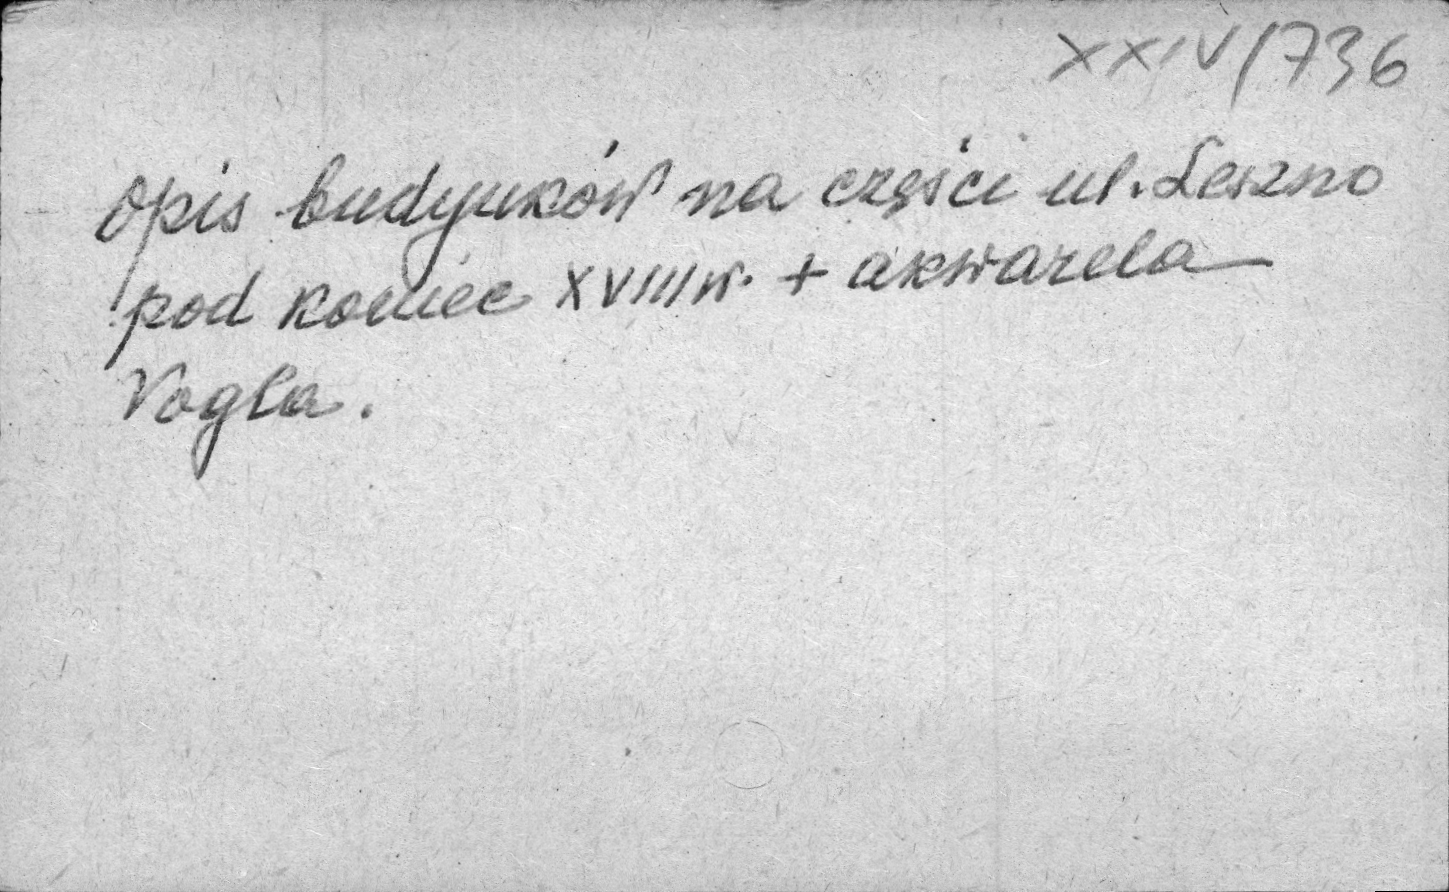 XXIV/736
Opis budynków na części ul. Leszno
pod koniec XVIII w. + akwarela
Vogla.